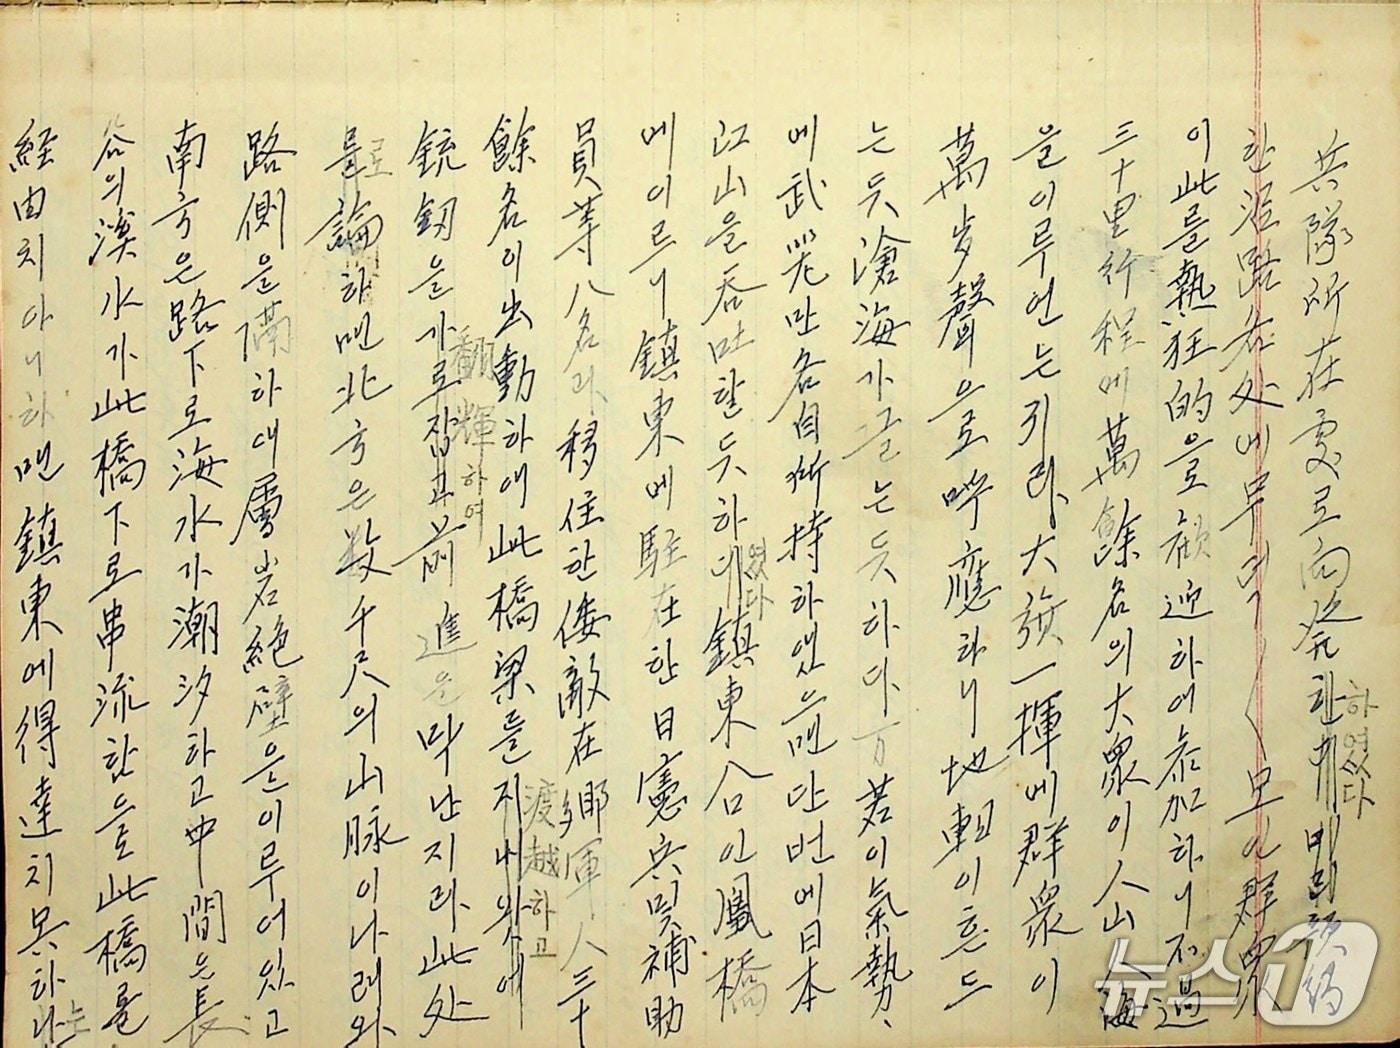 兵隊所在處로向發한
하였다
한沿路各处에무덕무덕모인群衆
이此를熱狂的으로歡迎하여參加하니不過
三十里行程에萬餘名의大衆이人山人海
을이루었는지라大旗一揮에群衆이
萬岁聲으로呼應하니地軸이흔드
는듯滄海가끌는듯하다万若이氣勢、
에武器만各自所持하엿으면단번에日本
江山을呑吐할듯하
였다
鎭東合인鳳橋
에이르니鎭東에駐在한日憲兵및補助
員等八名과移住한倭敵在鄕軍人三十
餘名이出動하여此橋梁를지나와서
渡越하고
銃釼을가로잡고前進을막난지라此处
翻輝하여
를論하면北方은数千尺의山脉이나려와
로
路側을隔하대層岩絕壁을이루어있고
南方은路下로海水가潮汐하고中間은長
谷의溪水가此橋下로串流함으로此橋를
経由치아니하면鎭東에得達치못하나
는
뉴스1